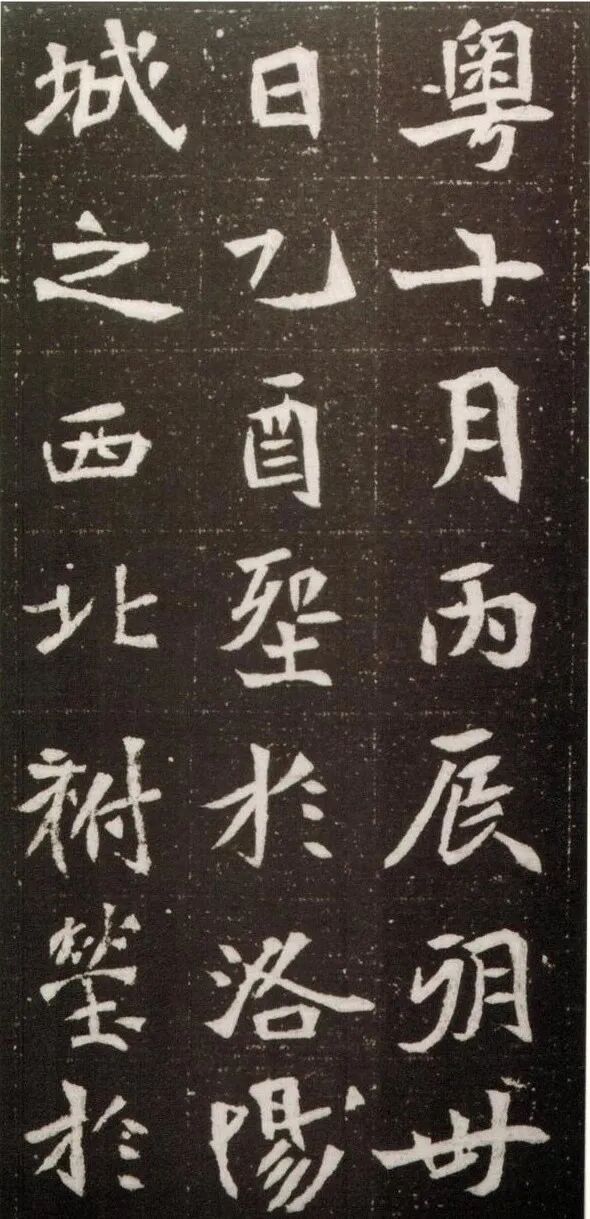 粤十月丙辰朔卅
日乙酉於洛陽
城之西北祔塋於